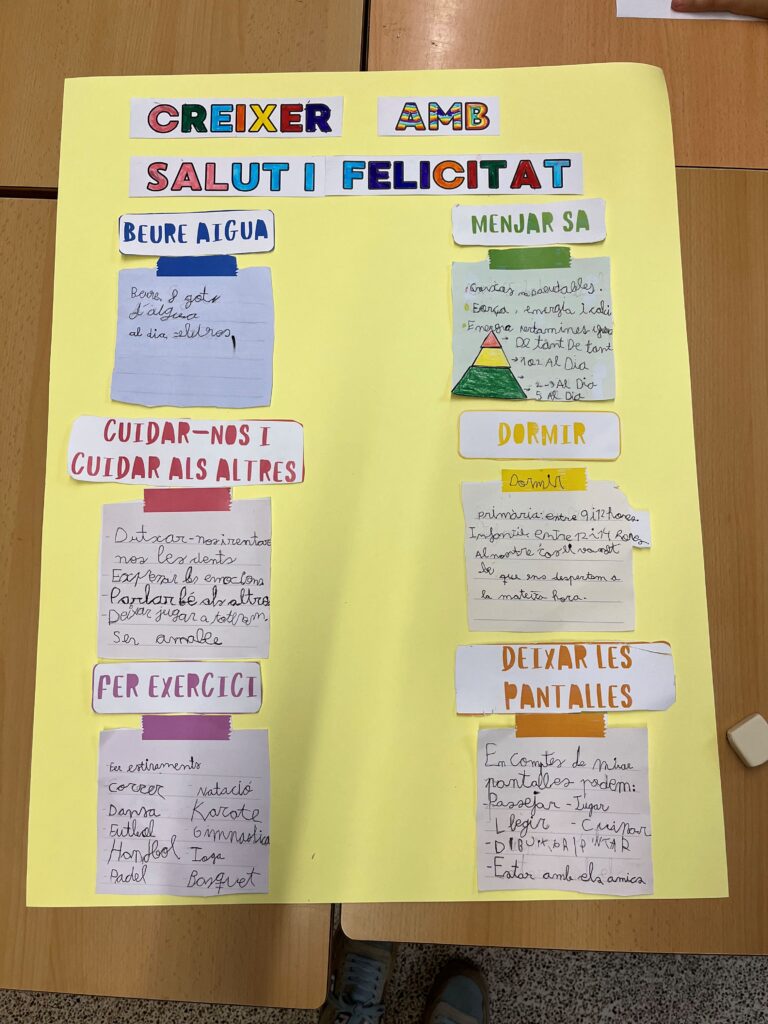 CREIXER AMB
SALUT I FELICITAT
BEURE AIGUA
Beure 8 gots
d'aigua
al dia
CUIDAR-NOS I
CUIDAR ALS ALTRES
- Dutxar-nos i rentar
nos les dents
- Expresar les emocions
- Parlar bé als altres
- Deixar jugar a tothom
Ser amable
FER EXERCICI
Fer estiraments
Correr Natació
Dansa Karate
Futbol Gimnastica
Handbol Ioga
Padel Basquet
MENJAR SA
Grasas saludables.
Força, energía i
Energia
De tant De tant
1 o 2 Al Dia
2-3 Al Dia
5 Al Dia
DORMIR
Dormir
primària: entre 9 i 12 hores.
Infantil: entre 12 i 14 hores
Al nostre cos li va molt
be
que ens despertem a
la mateixa hora.
DEIXAR LES
PANTALLES
En comptes de mirar
pantalles podem:
- Passejar - Jugar
- Llegir - Cuinar
- DIBUIXAR I PINTAR
- Estar amb els amics